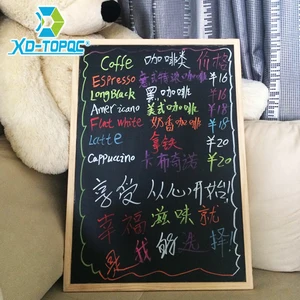 XD-TOPAC
Coffe 咖啡类 价格
Espresso 意式特浓咖啡 ¥16
Long Black 黑咖啡 ¥16
Americano 美式咖啡 ¥18
Flat white 奶香咖啡 ¥18
Latte 拿铁 ¥20
Cappuccino 卡布奇诺 ¥20
享受从心开始!
幸福滋味就
是我够选择!